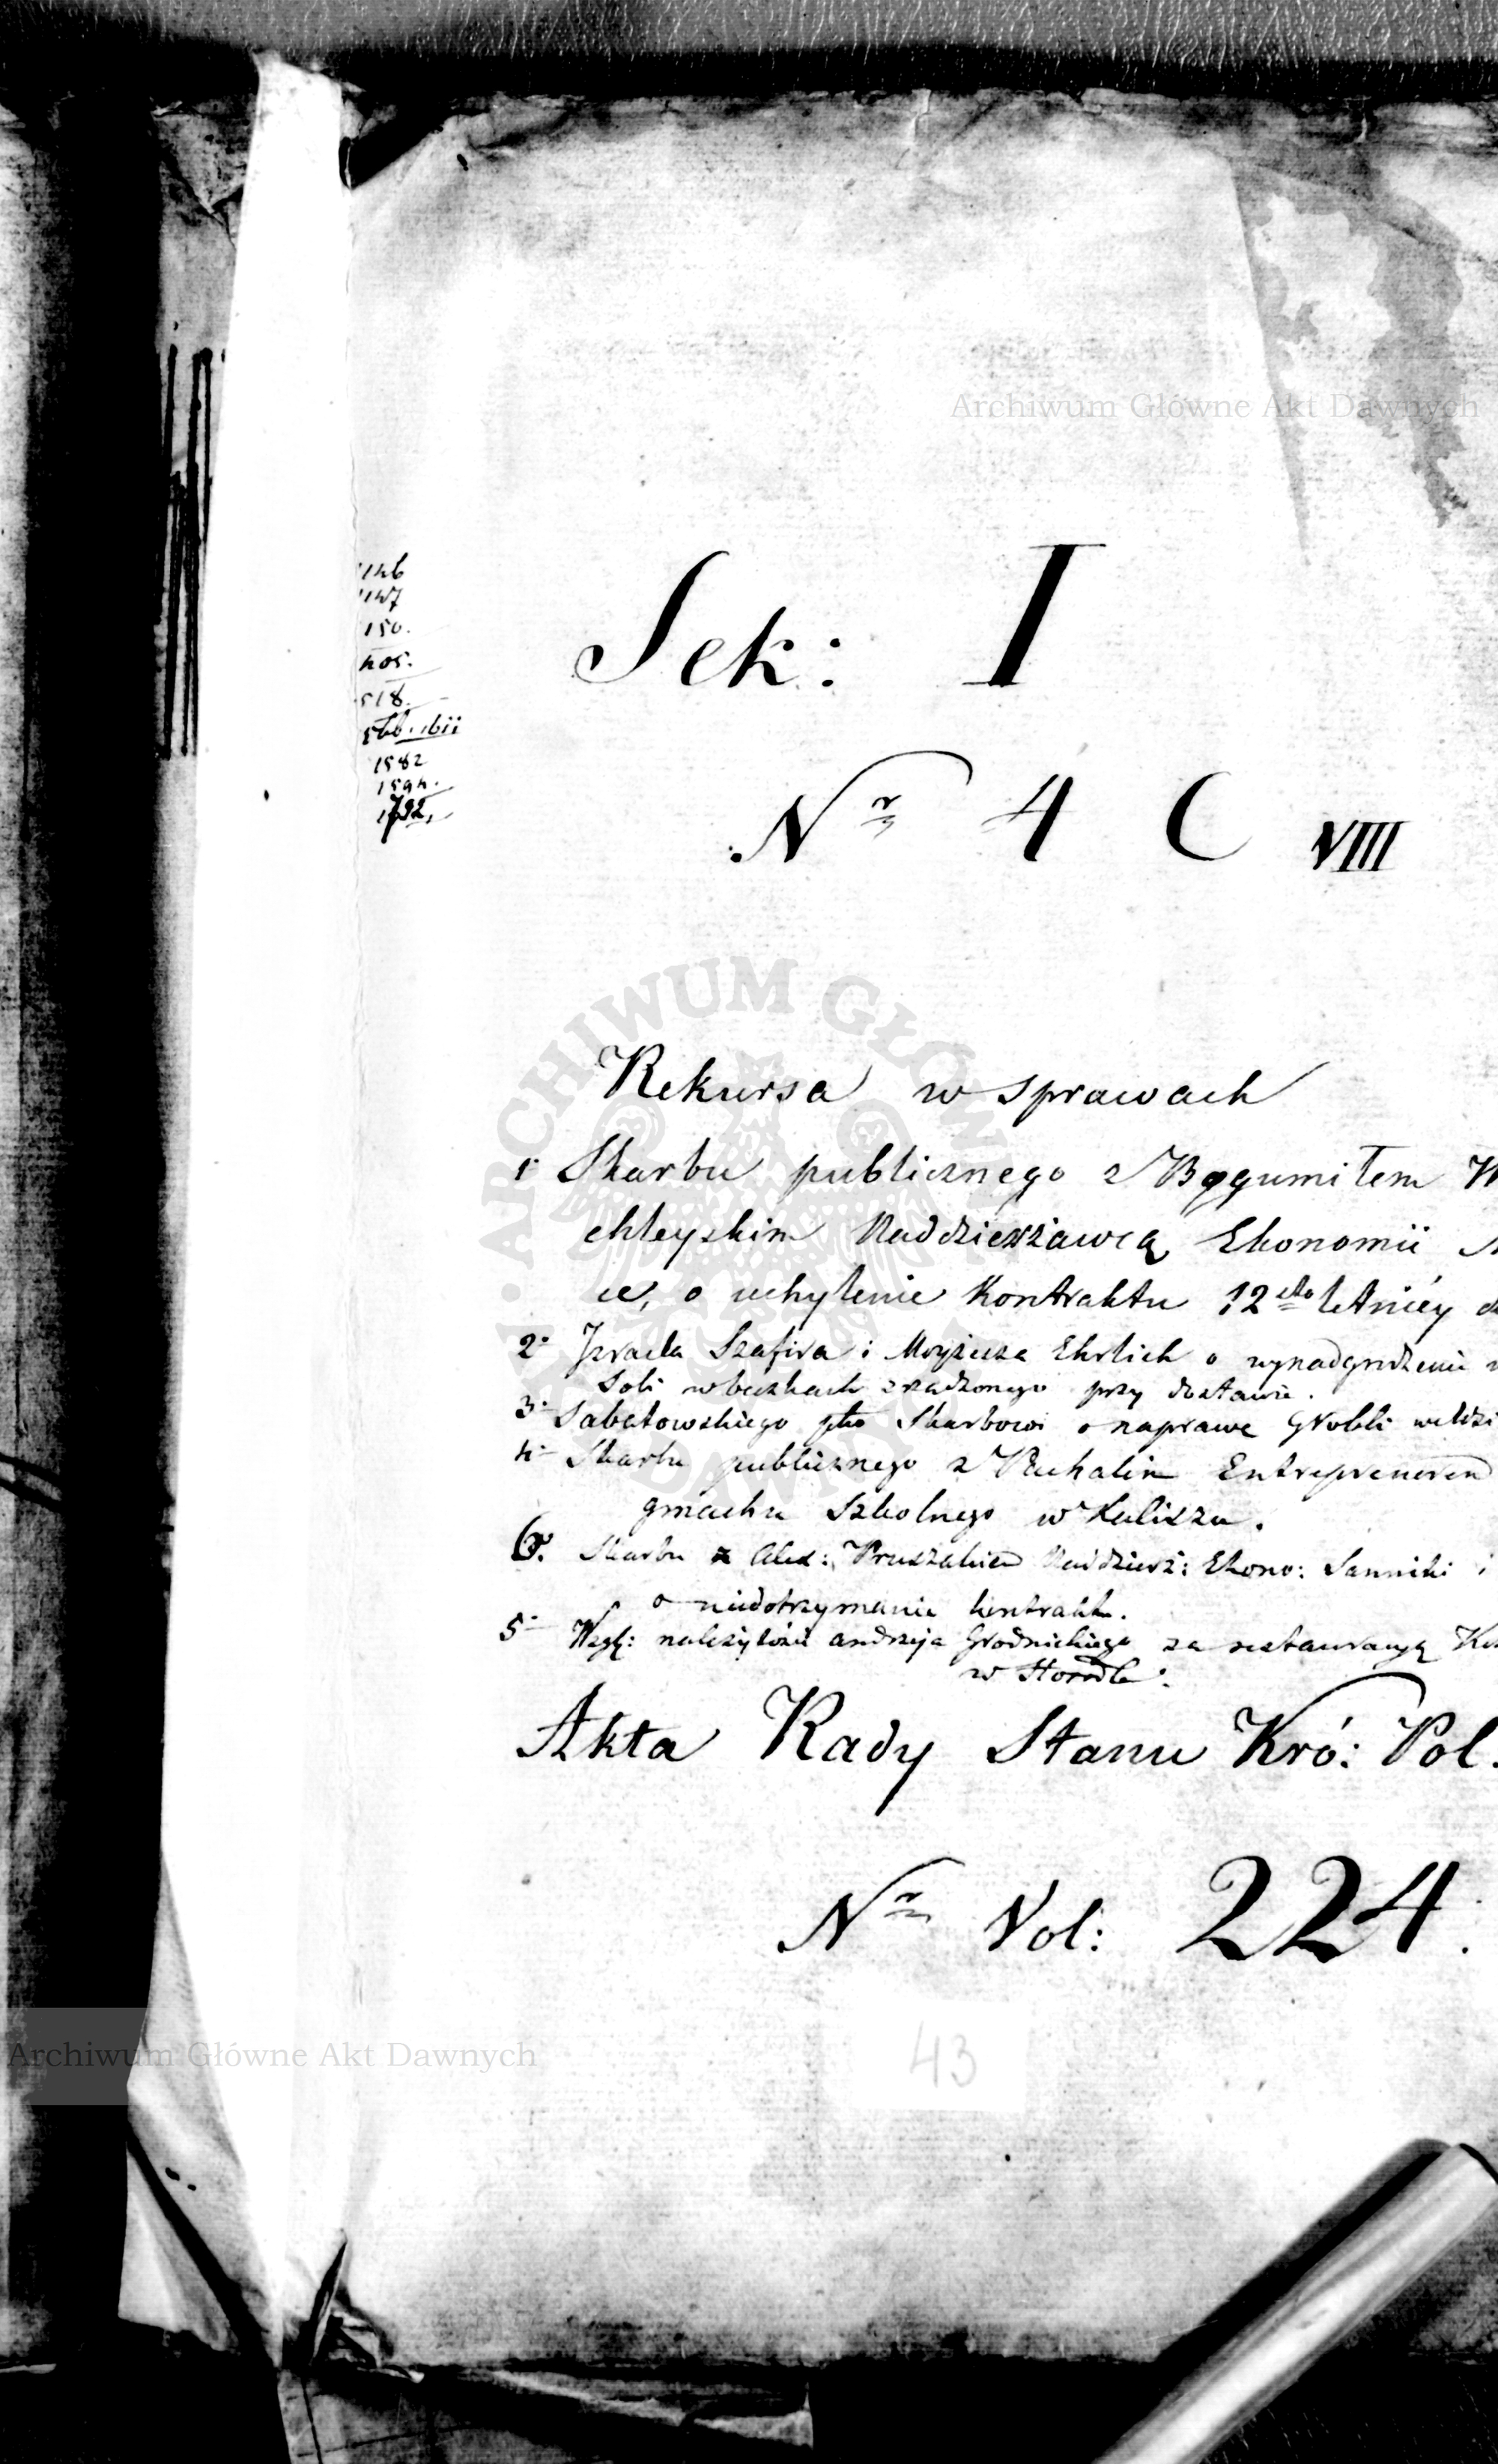 Sek: I
Nr 4 C VIII
146
147
150.
405.
518.
1582
1594.
1792.
Rekursa w sprawach
1 Skarbu publicznego z Bogumiłem W
chleyskim Naddzierżawcą Ekonomii
ce, o uchylenie Kontraktu 12sto letniéy
2. Izraela Szafira i Moyżesza Ehrlich o wynadgrodzenie
Soli w beczkach zrządzonego przy dostawie.
3. Sabatowskiego pko Skarbowi o naprawę Grobli
4. Skarbu publicznego z Pachalin Entreprenerem
gmachu Szkolnego w Kaliszu.
6. Skarbu z Alex: Pruszakiem Naddzierż: Ekono: Sanniki i
o niedotrzymanie kontrakt.
5. Wzgl: należytości Andrzeja Grodnickiego za restauracyą
w Horodle.
Akta Rady Stanu Kró: Pol.
Nr Vol: 224.
43
Archiwum Główne Akt Dawnych
Archiwum Główne Akt Dawnych